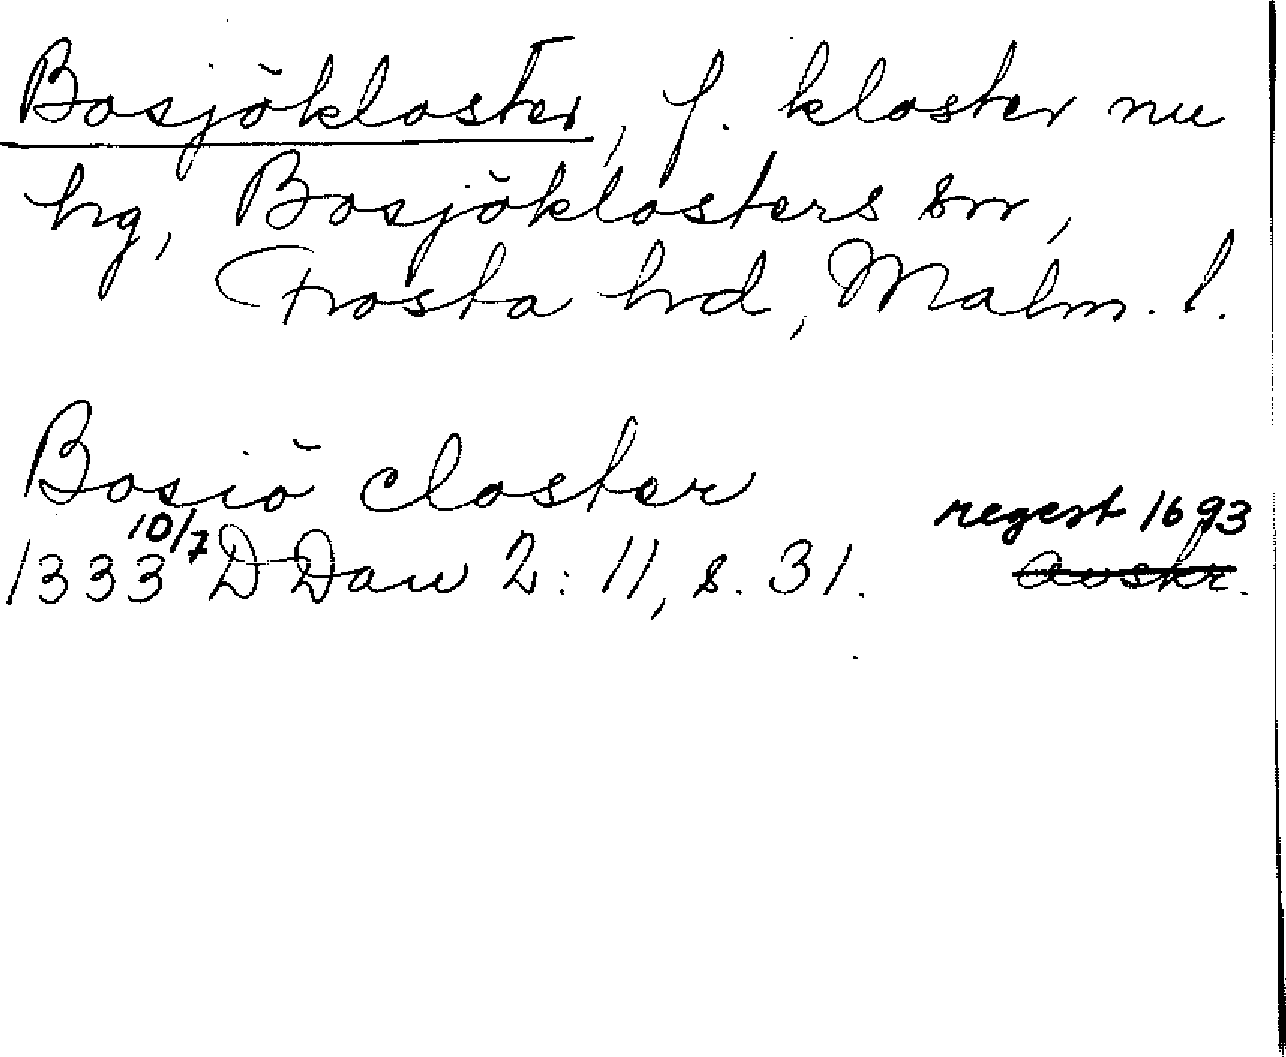 Bosjökloster, f. kloster nu
hg, Bosjöklosters sn,
Frosta hd, Malm. l.
Bosiö closter
regest 1693
1333 10/7 D Dan 2: 11, s. 31. Avskr.